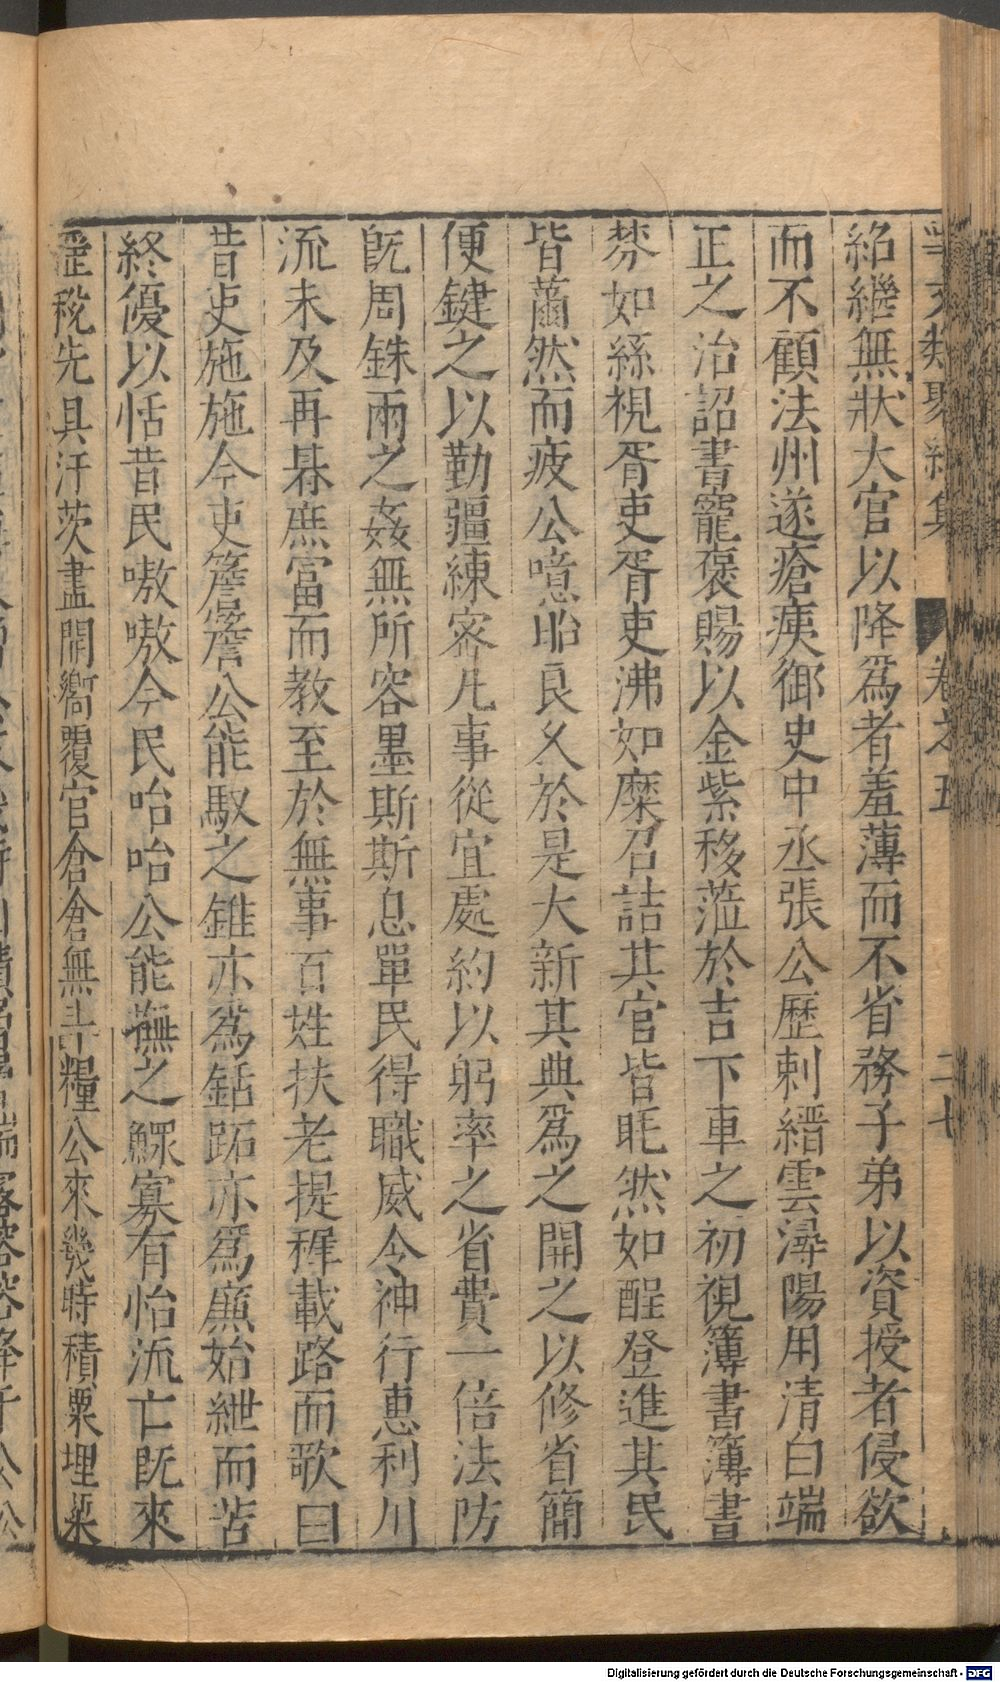 事文類聚續集 卷之五 二十
紿繼無狀大官以降爲者羞薄而不省務子弟以資授者侵欲
而不顧法州遂瘡痍御史中丞張公歷剌縉雲潯陽用清白端
正之治詔書寵褒賜以金紫移蒞於吉下車之初視簿書簿書
棼如絲視胥吏胥吏沸如糜召詰其官皆眊然如酲登進其民
皆薾然而疲公噫昭良久於是大新其典爲之開之以修省簡
便鍵之以勤彊練密凡事從宜處約以躬率之省費一倍法防
既周銖兩之姦無所容墨斯斯息單民得職威令神行恵利川
流未及再朞庶富而教至於無事百姓扶老提稺載路而歌曰
昔吏施施今吏簷簷公能馭之錐亦爲銛跖亦爲廉始紲而苦
終優以恬昔民嗷嗷今民咍咍公能撫之鰥寡有怡流亡旣來
逕稅先具汙茨盡開嚮覆官倉倉無斗糧公來幾時積粟埋梁
Digitalisierung gefördert durch die Deutsche Forschungsgemeinschaft - DFG